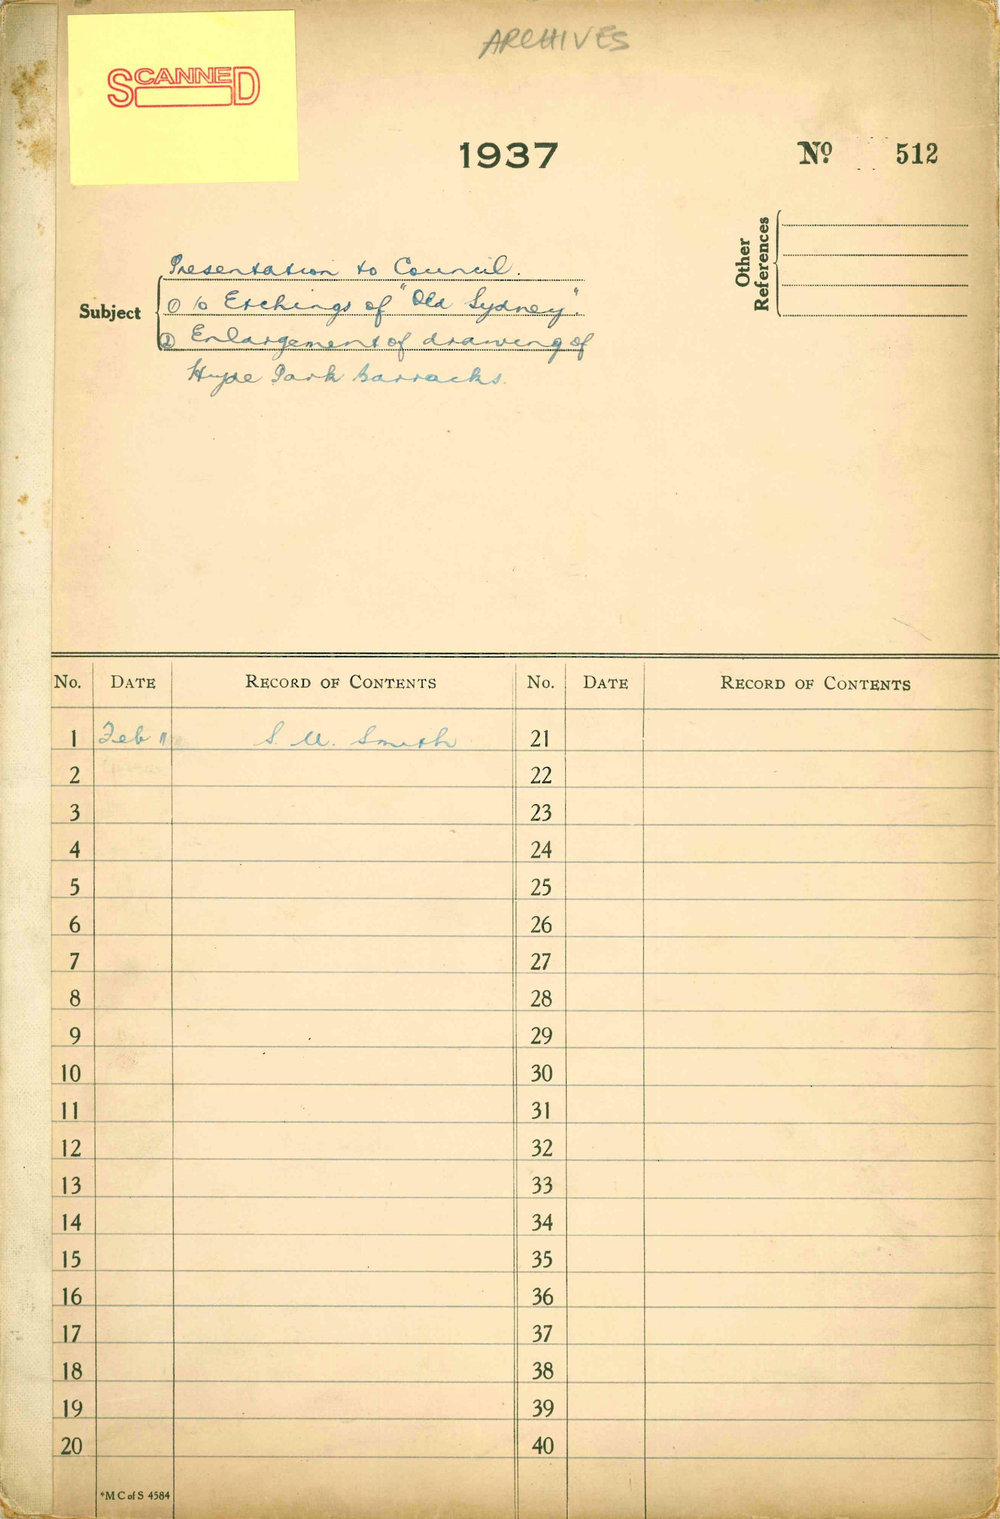 ARCHIVES
SCANNED
1937
No 512
Other References
Subject
Presentation to Council.
① 10 Etchings of "Old Sydney".
② Enlargement of drawing of
Hyde Park Barracks.
No. DATE RECORD OF CONTENTS No. DATE RECORD OF CONTENTS
1 Feb 11 S. U. Smith 21
2 22
3 23
4 24
5 25
6 26
7 27
8 28
9 29
10 30
11 31
12 32
13 33
14 34
15 35
16 36
17 37
18 38
19 39
20 40
*M C of S 4584